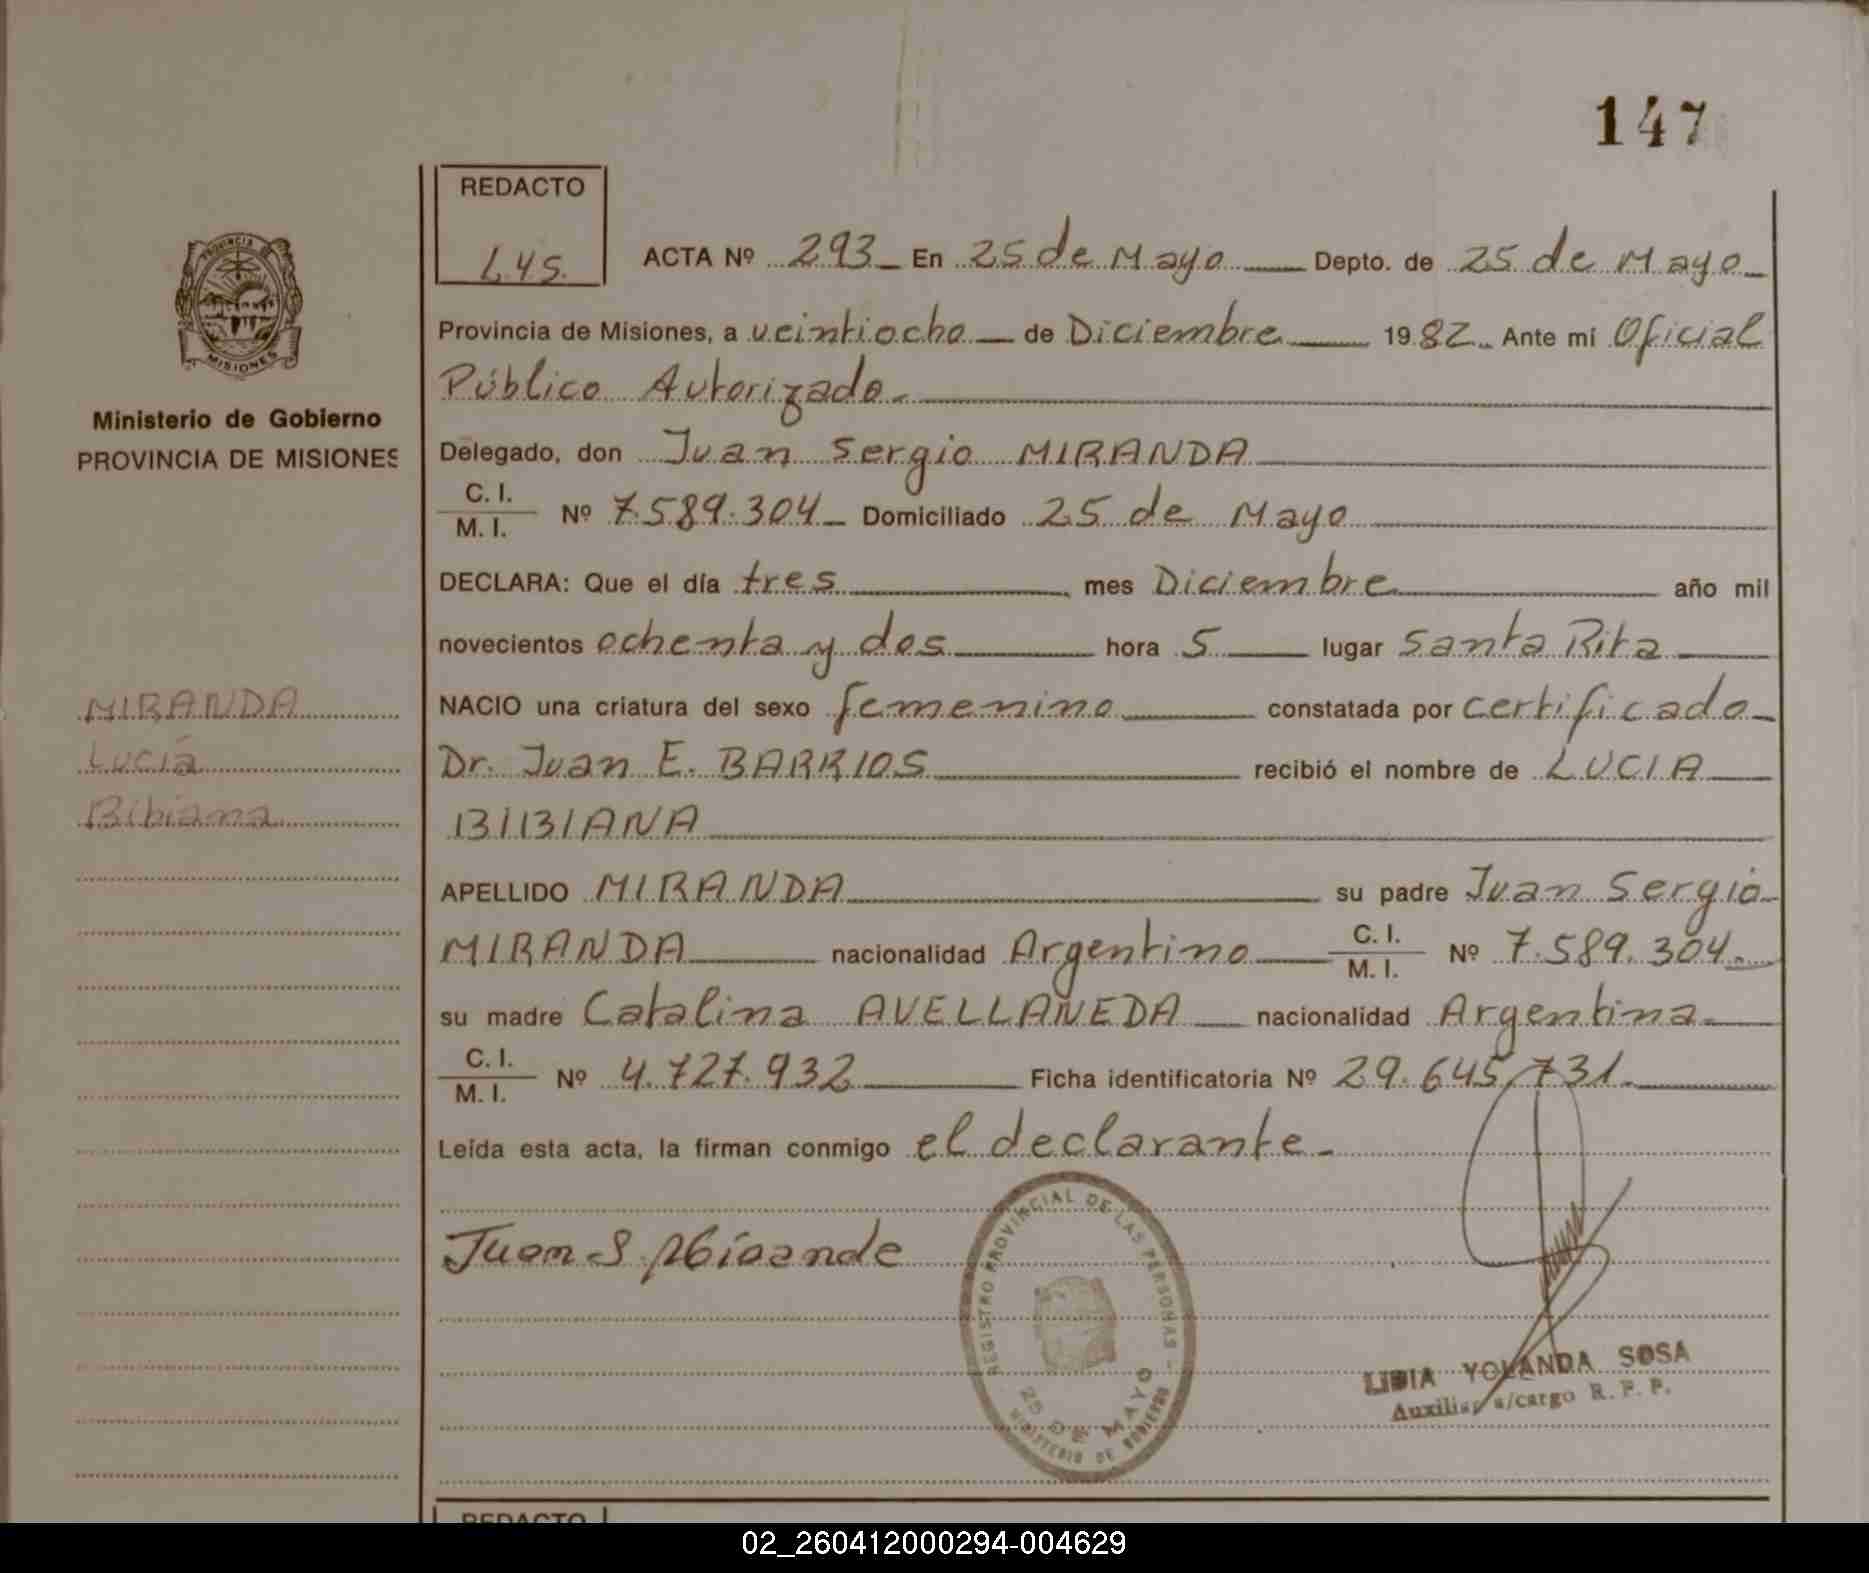 147
REDACTO
L.Y.S.
ACTA Nº 293 En 25 de Mayo Depto. de 25 de Mayo
Provincia de Misiones, a veintiocho de Diciembre 1982. Ante mi Oficial
Público Autorizado.
Delegado, don Juan Sergio MIRANDA
C. I.
M. I.
Nº 7.589.304 Domiciliado 25 de Mayo
DECLARA: Que el día tres mes Diciembre año mil
novecientos ochenta y dos hora 5 lugar Santa Rita
NACIO una criatura del sexo femenino constatada por certificado
Dr. Juan E. BARRIOS recibió el nombre de LUCIA
BIBIANA
APELLIDO MIRANDA su padre Juan Sergio
MIRANDA nacionalidad Argentino C. I. M. I. Nº 7.589.304.
su madre Catalina AVELLAÑEDA nacionalidad Argentina
C. I.
M. I.
Nº 4.727.932 Ficha identificatoria Nº 29.645.731.
Leída esta acta, la firman conmigo el declarante.
Juan S. Miranda
PROVINCIA DE
MISIONES
Ministerio de Gobierno
PROVINCIA DE MISIONES
MIRANDA
Lucía
Bibiana
REGISTRO PROVINCIAL DE LAS PERSONAS
25 DE MAYO
MINISTERIO DE GOBIERNO
LIDIA YOLANDA SOSA
Auxiliar a/cargo R. P. P.
REDACTO
02_260412000294-004629